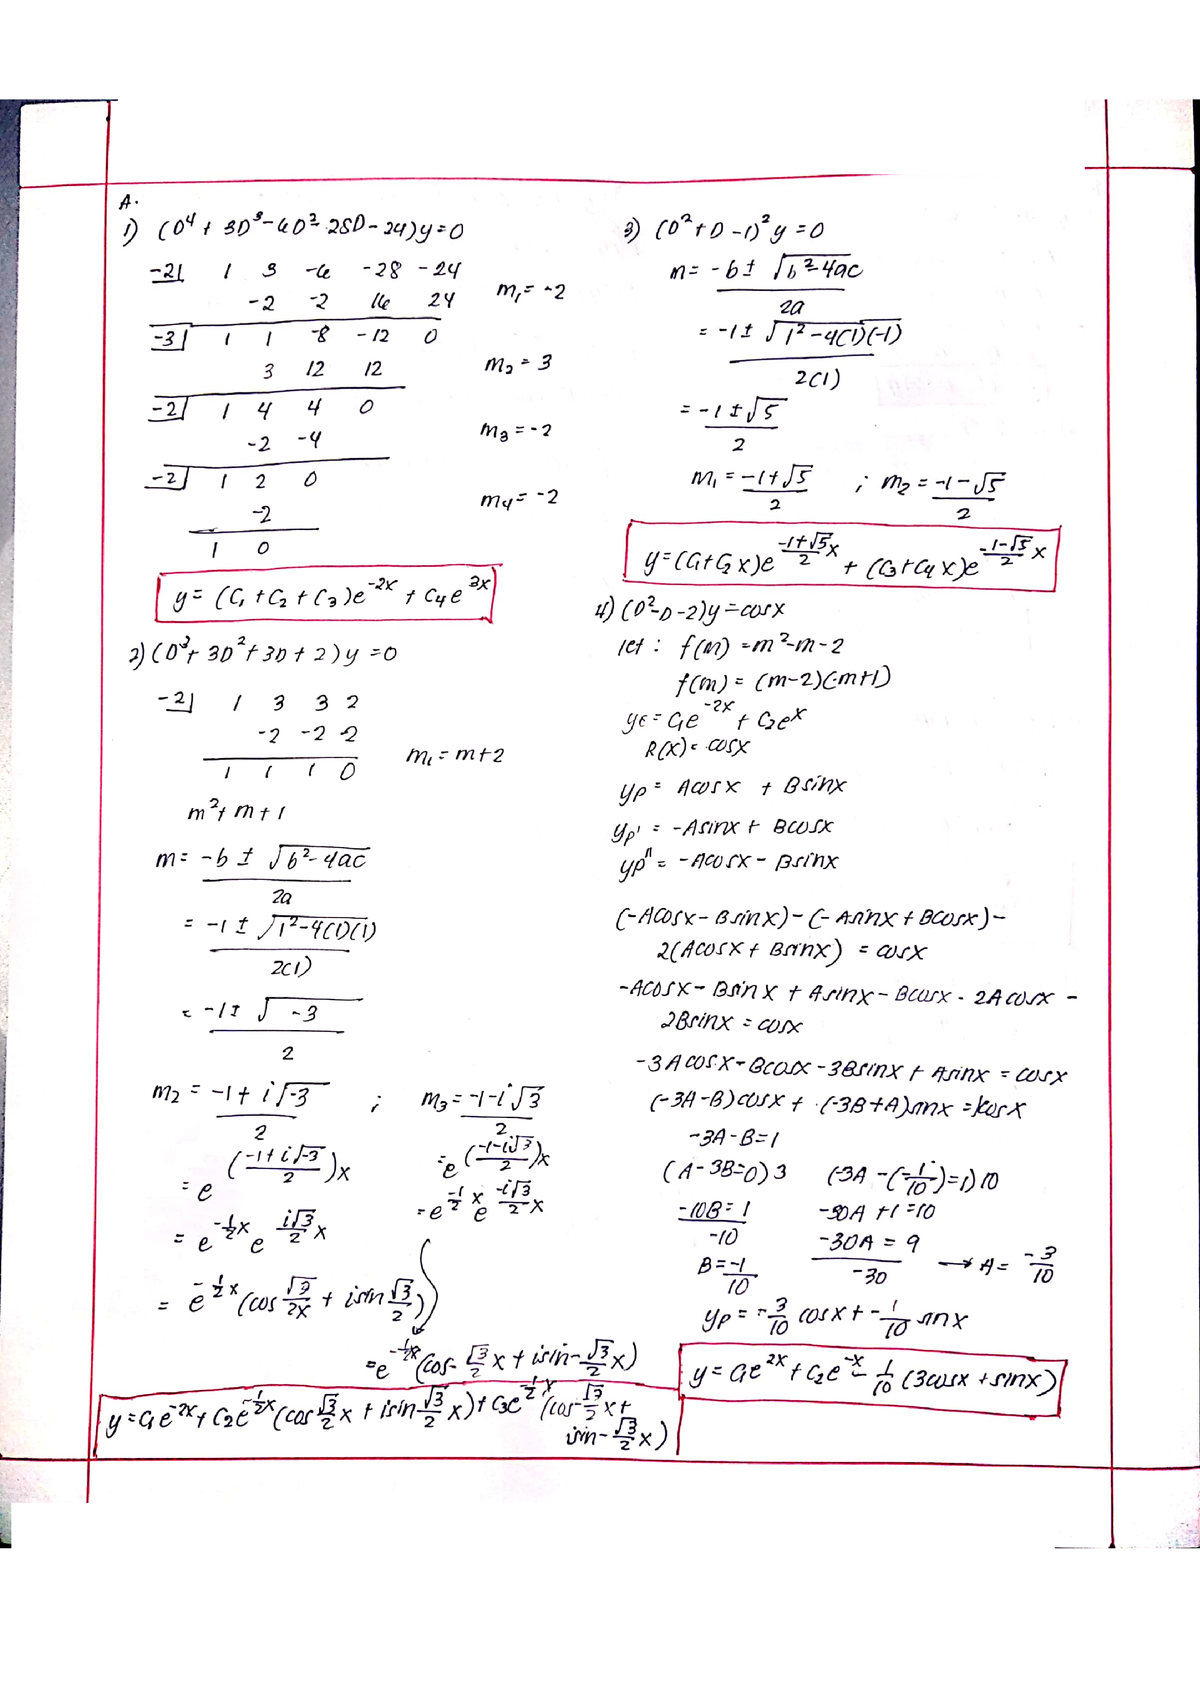 A.
1) (D⁴ + 3D³ - 6D² - 28D - 24)y = 0
-2| 1 3 -6 -28 -24
-2 -2 16 24 m₁ = -2
-3| 1 1 -8 -12 0
3 12 12 m₂ = 3
-2| 1 4 4 0
-2 -4 m₃ = -2
-2| 1 2 0
-2 m₄ = -2
1 0
y = (C₁ + C₂ + C₃)e^-2x + C₄e^3x
2) (D³ + 3D² + 3D + 2)y = 0
-2| 1 3 3 2
-2 -2 -2
1 1 1 0 m₁ = m+2
m² + m + 1
m = -b ± √b² - 4ac / 2a
= -1 ± √1² - 4(1)(1) / 2(1)
= -1 ± √-3 / 2
m₂ = -1 + i√-3 / 2 ; m₃ = -1 - i√3 / 2
= e^(-1+i√-3 / 2)x = e^(-1-i√3 / 2)x
= e^-½x e^i√3/2 x = e^-½x e^-i√3/2 x
= e^-½x (cos √3/2x + isin √3/2)
= e^-½x (cos -√3/2 x + isin -√3/2 x)
y = C₁e^-2x + C₂e^-½x (cos √3/2 x + isin √3/2 x) + C₃e^-½x (cos -√3/2 x +
isin -√3/2 x)
3) (D² + D - 1)² y = 0
m = -b ± √b² - 4ac / 2a
= -1 ± √1² - 4(1)(-1) / 2(1)
= -1 ± √5 / 2
m₁ = -1 + √5 / 2 ; m₂ = -1 - √5 / 2
y = (C₁ + C₂x)e^-1+√5/2 x + (C₃ + C₄x)e^-1-√5/2 x
4) (D² - D - 2)y = cosx
let : f(m) = m² - m - 2
f(m) = (m-2)(m+1)
yc = C₁e^-2x + C₂e^x
R(x) = cosx
yp = Acosx + Bsinx
yp' = -Asinx + Bcosx
yp" = -Acosx - Bsinx
(-Acosx - Bsinx) - (-Asinx + Bcosx) -
2(Acosx + Bsinx) = cosx
-Acosx - Bsinx + Asinx - Bcosx - 2Acosx -
2Bsinx = cosx
-3Acosx - Bcosx - 3Bsinx + Asinx = cosx
(-3A - B)cosx + (-3B + A)sinx = 1cosx
-3A - B = 1
(A - 3B = 0)3 (-3A - (-1/10) = 1)10
-10B = 1 / -10 -30A + 1 = 10
B = -1/10 -30A = 9 / -30 → A = -3/10
yp = -3/10 cosx + -1/10 sinx
y = C₁e^2x + C₂e^-x - 1/10 (3cosx + sinx)